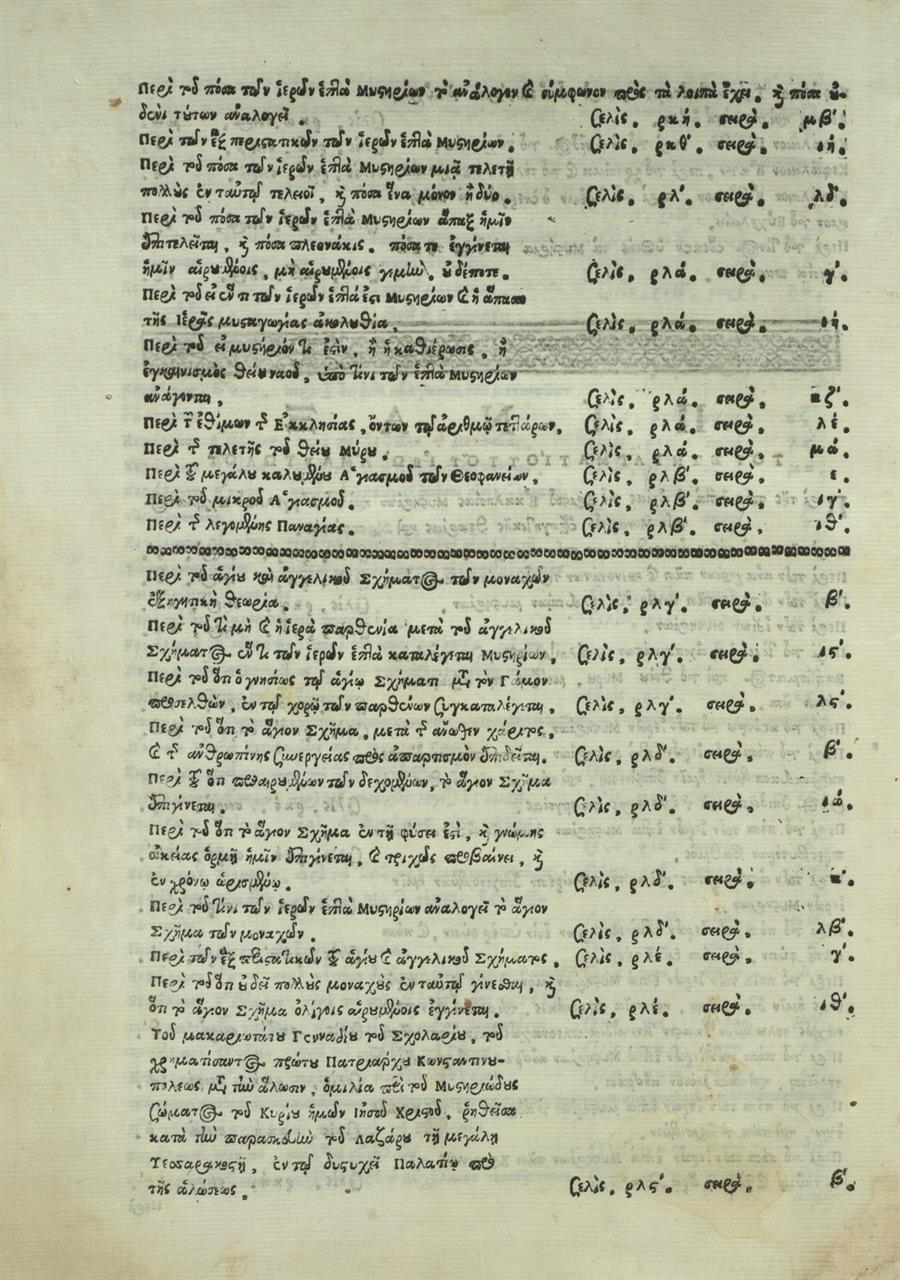 Περὶ τοῦ πόσα τῶν ἱερῶν ἑπτὰ Μυστηρίων τὸ ἀνάλογον ϗ σύμφωνον πρὸς τὰ λοιπὰ ἔχει. ϗ πόσα οὐ-
δενὶ τούτων ἀναλογεῖ. Σελὶς. ρκή. σειρὰ. μβ'.
Περὶ τῶν ἓξ περιστατικῶν τῶν ἱερῶν ἑπτὰ Μυστηρίων. Σελὶς. ρκθ'. σειρὰ. ιή.
Περὶ τοῦ πόσα τῶν ἱερῶν ἑπτὰ Μυστηρίων μιᾷ τελετῇ
πολλοὺς ἐν ταὐτῷ τελειοῖ, ϗ πόσα ἕνα μόνον ἢ δύο. Σελὶς. ρλ'. σειρὰ. λδ'.
Περὶ τοῦ πόσα τῶν ἱερῶν ἑπτὰ Μυστηρίων ἅπαξ ἡμῖν
ἐπιτελεῖται, ϗ πόσα πλεονάκις. πόσα τε ἐγγίνεται
ἡμῖν αἱρουμένοις, μὴ αἱρουμένοις γεμὴν, οὐδέποτε. Σελὶς. ρλά. σειρὰ. γ'.
Περὶ τοῦ εἰ ἕν τι τῶν ἱερῶν ἑπτά ἐστι Μυστηρίων ϗ ἡ ἅπασα
τῆς Ἱερᾶς μυσταγωγίας ἀκολουθία. Σελὶς. ρλά. σειρὰ. ιή.
Περὶ τοῦ εἰ μυστήριόν τι ἐστὶν, ἢ ἡ καθιέρωσις, ἢ
ἐγκαινισμὸς θείου ναοῦ, ὑπὸ τίνι τῶν ἑπτὰ Μυστηρίων
ἀνάγονται. Σελὶς. ρλά. σειρὰ. κζ'.
Περὶ τῶν ἐθίμων τῆς Ἐκκλησίας, ὄντων τῷ ἀριθμῷ τεττάρων. Σελὶς. ρλά. σειρὰ. λέ.
Περὶ τῆς τελετῆς τοῦ θείου Μύρου. Σελὶς. ρλά. σειρὰ. μά.
Περὶ τοῦ μεγάλου καλουμένου Ἁγιασμοῦ τῶν Θεοφανείων. Σελὶς. ρλβ'. σειρὰ. ε.
Περὶ τοῦ μικροῦ Ἁγιασμοῦ. Σελὶς. ρλβ'. σειρὰ. ιγ'.
Περὶ τῆς λεγομένης Παναγίας. Σελὶς. ρλβ'. σειρὰ. ιθ'.
Περὶ τοῦ ἁγίου καὶ ἀγγελικοῦ Σχήματος τῶν μοναχῶν
ἐξηγητικὴ θεωρία. Σελὶς. ρλγ'. σειρὰ. β'.
Περὶ τοῦ τί μὴ ϗ ἡ ἱερὰ παρθενία μετὰ τοῦ ἀγγελικοῦ
Σχήματος ἕν τι τῶν ἱερῶν ἑπτὰ καταλέγεται Μυστηρίων. Σελὶς. ρλγ'. σειρὰ. ις'.
Περὶ τοῦ ὅτι ὁ γνησίως τῷ ἁγίῳ Σχήματι μετὰ τὸν Γάμον
προσελθὼν, ἐν τῷ χορῷ τῶν παρθένων συγκαταλέγεται. Σελὶς. ρλγ'. σειρὰ. λς'.
Περὶ τοῦ ὅτι τὸ ἅγιον Σχῆμα, μετὰ τῆς ἄνωθεν χάριτος,
ϗ τῆς ἀνθρωπίνης συνεργείας πρὸς ἀπαρτισμὸν ἐπιδεῖται. Σελὶς. ρλδ'. σειρὰ. β'.
Περὶ τοῦ ὅτι προαιρουμένων τῶν δεχομένων, τὸ ἅγιον Σχῆμα
ἐπιγίνεται. Σελὶς. ρλδ'. σειρὰ. ιά.
Περὶ τοῦ ὅτι τὸ ἅγιον Σχῆμα ἐν τῇ φύσει ἐστὶ, ϗ γνώμης
οἰκείας ὁρμῇ ἡμῖν ἐπιγίνεται, ϗ τριχῶς προβαίνει, ϗ
ἐν χρόνῳ ὡρισμένῳ. Σελὶς. ρλδ'. σειρὰ. κ'.
Περὶ τοῦ τίνι τῶν ἱερῶν ἑπτὰ Μυστηρίων ἀναλογεῖ τὸ ἅγιον
Σχῆμα τῶν μοναχῶν. Σελὶς. ρλδ'. σειρὰ. λβ'.
Περὶ τῶν ἓξ περιστατικῶν τοῦ ἁγίου ϗ ἀγγελικοῦ Σχήματος. Σελὶς. ρλέ. σειρὰ. γ'.
Περὶ τοῦ ὅτι οὐ δεῖ πολλοὺς μοναχοὺς ἐν ταὐτῷ γίνεσθαι, ϗ
ὅτι τὸ ἅγιον Σχῆμα ὀλίγοις αἱρουμένοις ἐγγίνεται. Σελὶς. ρλέ. σειρὰ. ιθ'.
Τοῦ μακαριωτάτου Γενναδίου τοῦ Σχολαρίου, τοῦ
χρηματίσαντος πρώτου Πατριάρχου Κωνσταντινου-
πόλεως μετὰ τὴν ἅλωσιν, ὁμιλία περὶ τοῦ Μυστηριώδους
Σώματος τοῦ Κυρίου ἡμῶν Ἰησοῦ Χριστοῦ, ῥηθεῖσα
κατὰ τὴν παρασκευὴν τοῦ Λαζάρου τῇ μεγάλῃ
Τεσσαρακοστῇ, ἐν τῷ δυστυχεῖ Παλατίῳ πρὸ
τῆς ἁλώσεως. Σελὶς. ρλς'. σειρὰ. β'.